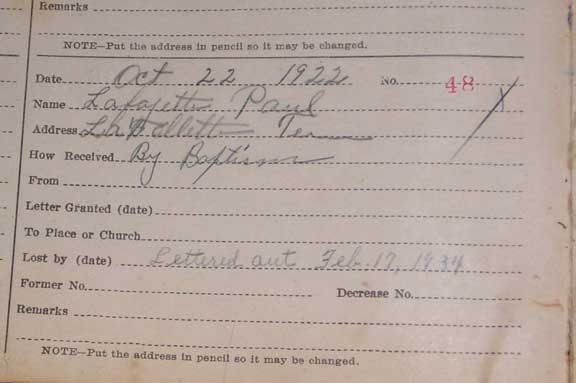 Remarks
NOTE—Put the address in pencil so it may be changed.
Date Oct 22 1922 No. 48
Name Lafayette Paul
Address Tenn
How Received By Baptism
From
Letter Granted (date)
To Place or Church
Lost by (date) Lettered out Feb. 17, 1934
Former No. Decrease No.
Remarks
NOTE—Put the address in pencil so it may be changed.